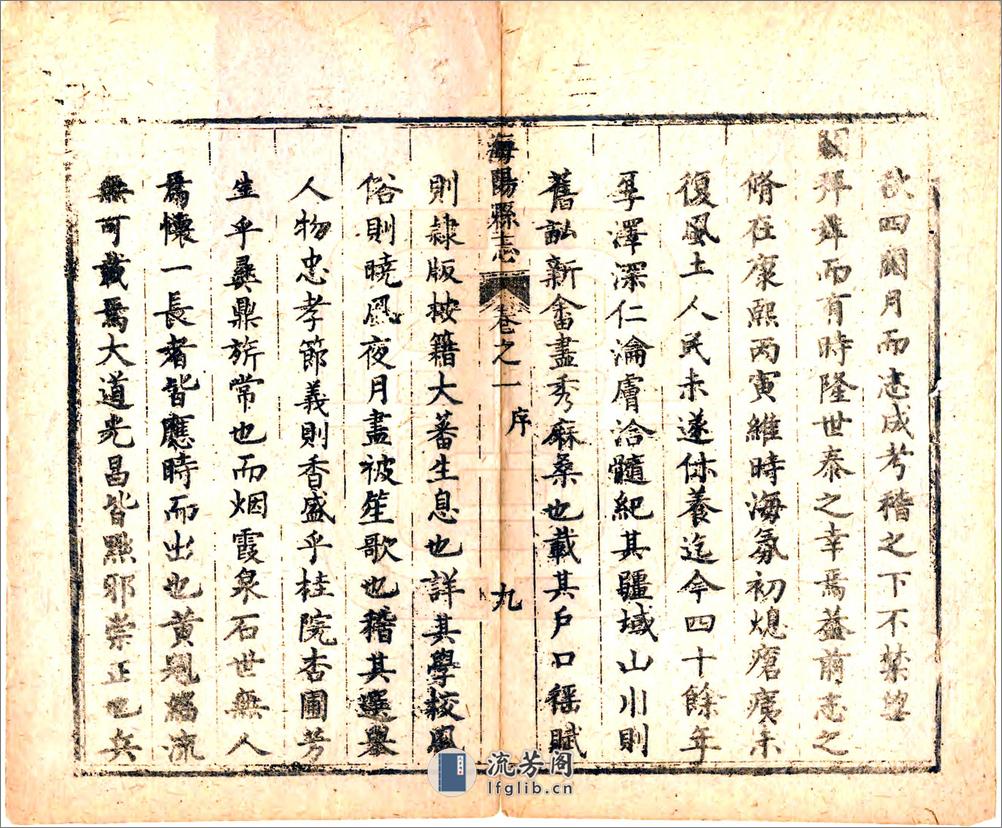 秋四閱月而志成考稽之下不禁望
闕拜䍧而有時隆世泰之幸焉葢前志之
脩在康熙丙寅維時海氛初熄瘡痍未
復風土人民未遂休養迄今四十餘年
厚澤深仁淪膚洽髓紀其疆域山川則
舊訟新畬盡秀麻桑也載其戶口徭賦
海陽縣志 卷之一 序 九
則隷版按籍大蕃生息也詳其學校風
俗則曉風夜月盡被笙歌也稽其選舉
人物忠孝節義則香盛乎桂院杏圃芳
生乎彝鼎旂常也而烟霞泉石世無人
焉懷一長者皆應時而出也黃冠緇流
無可載焉大道光昌皆黜邪崇正也兵
流芳阁
lfglib.cn